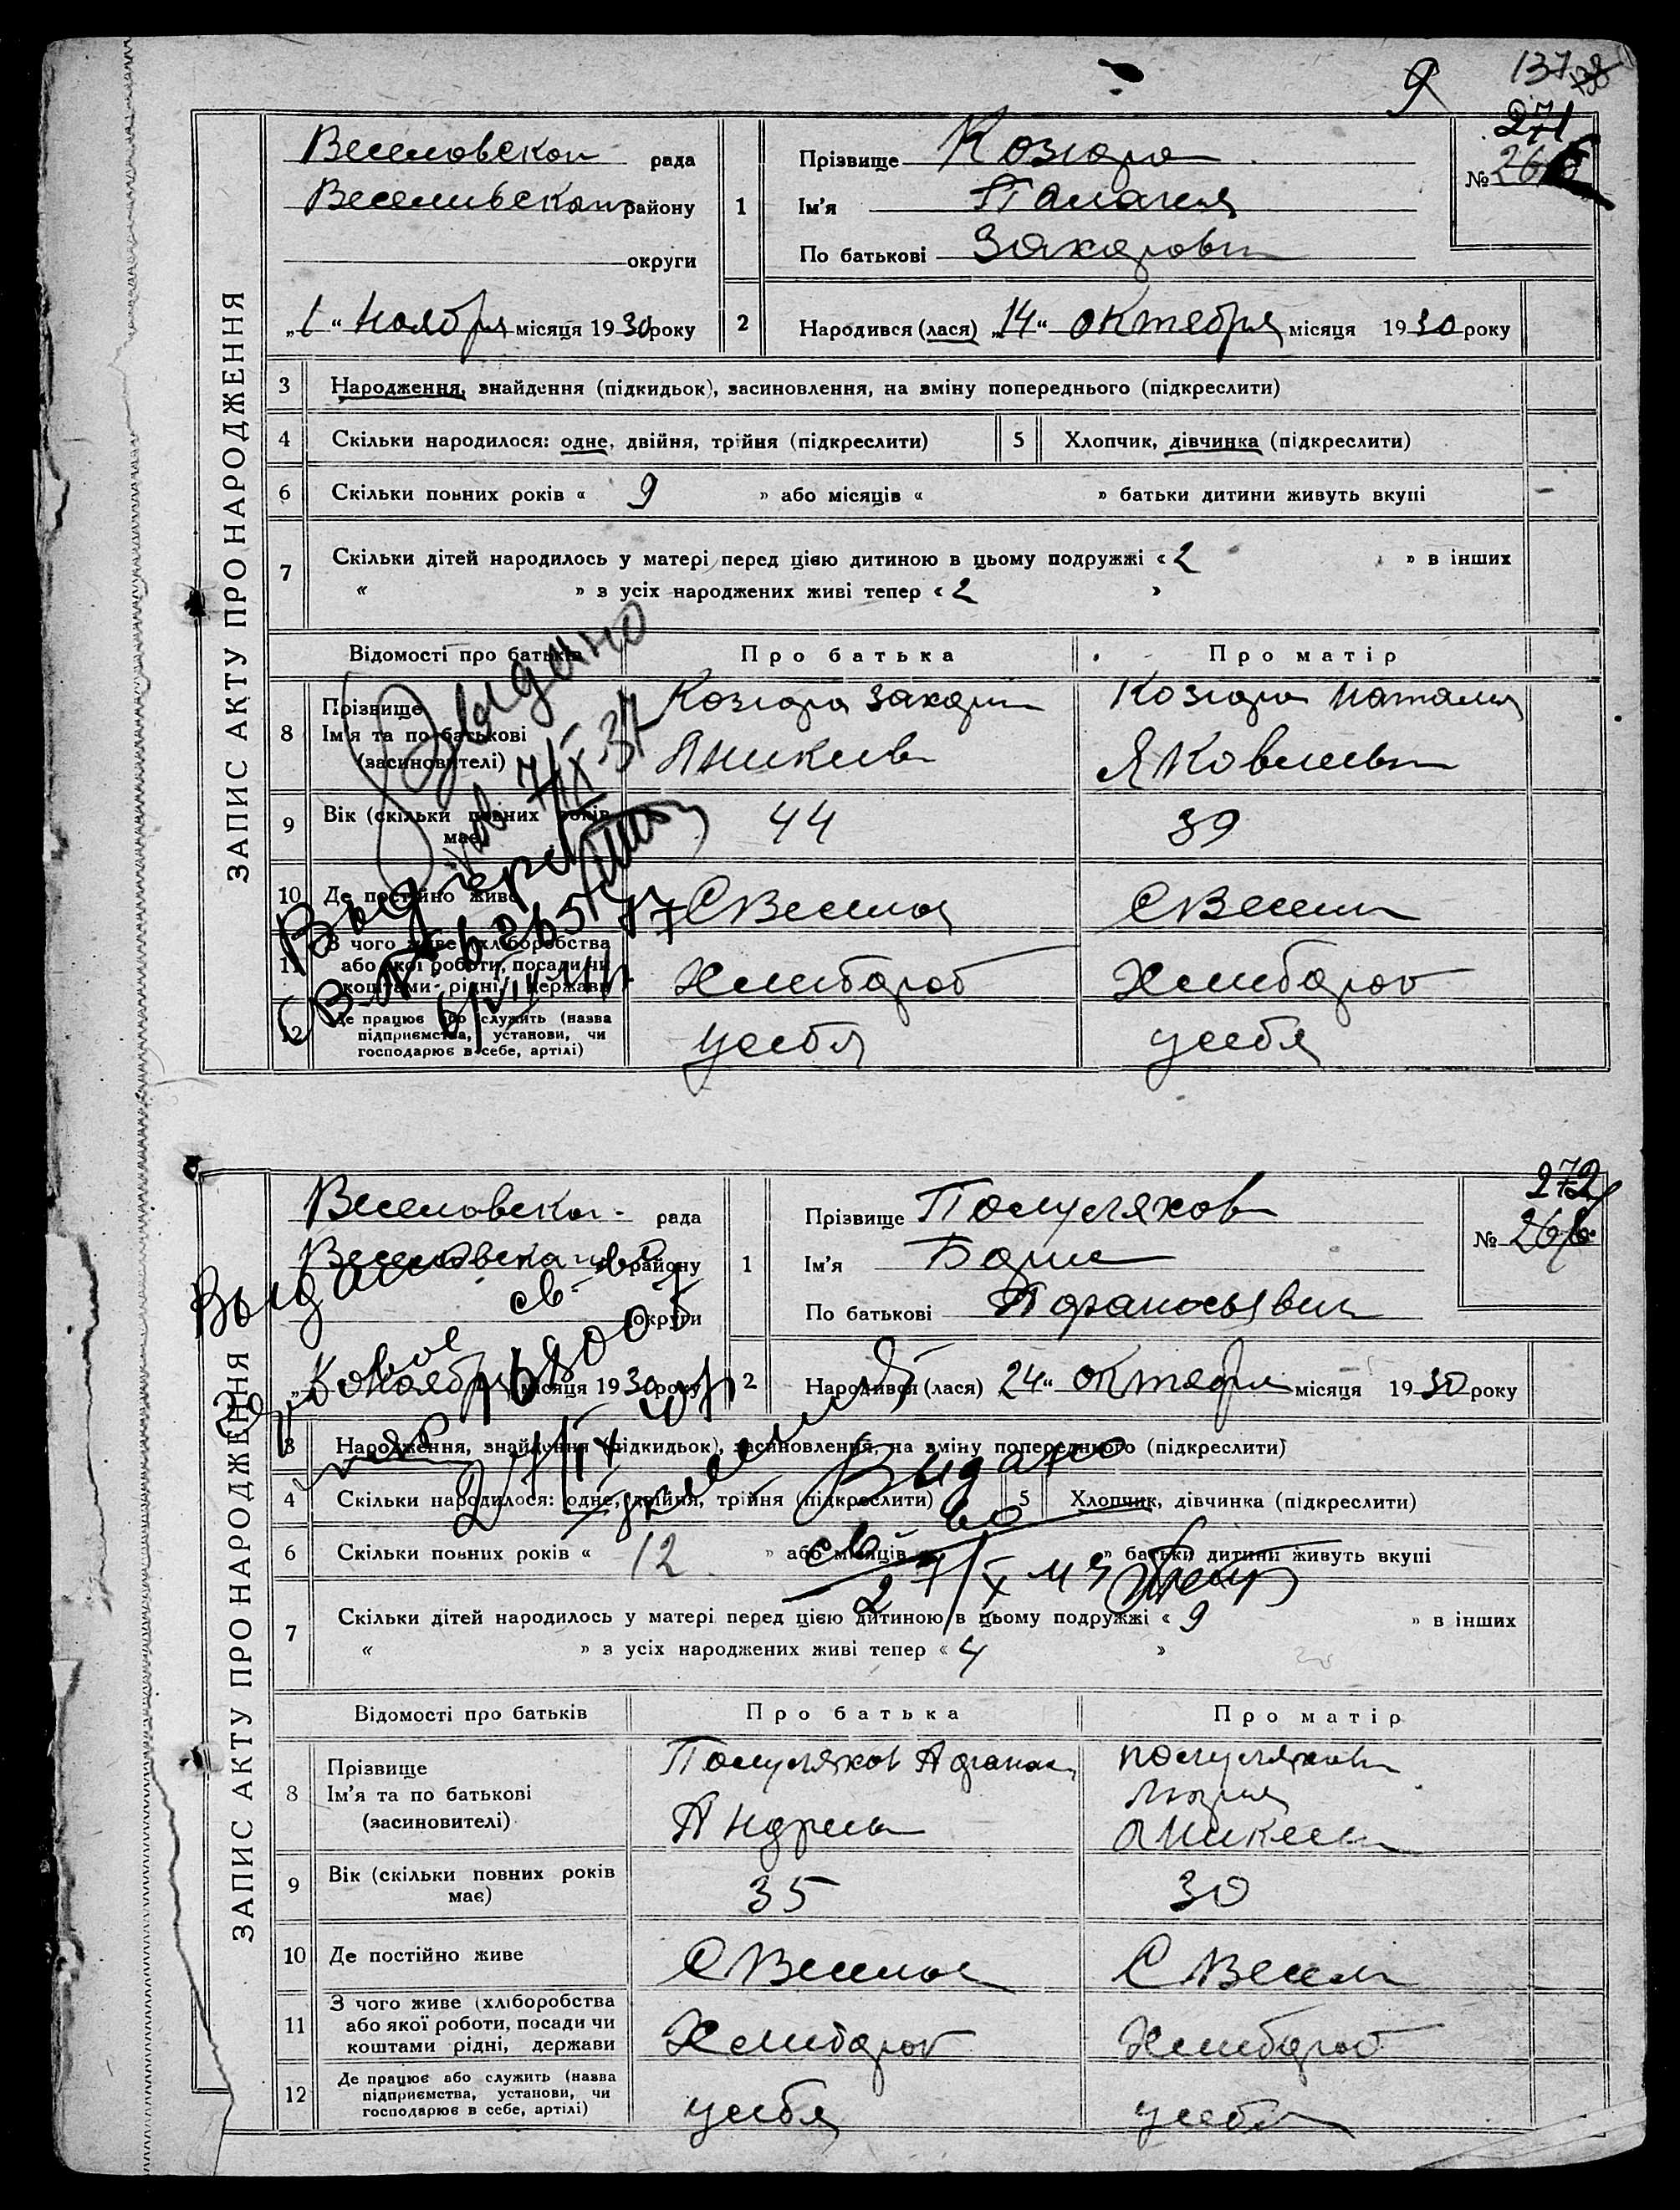 137
271
ЗАПИС АКТУ ПРО НАРОДЖЕННЯ
Веселовской рада
Веселовской району
округи
„1“ Ноября місяця 1930 року
1
Прізвище Козюра
Ім'я Палагея
По батькові Захаровн
№
2
Народився (лася) „14“ октебря місяця 1930 року
3 Народження, знайдення (підкидьок), засиновлення, на зміну попереднього (підкреслити)
4 Скільки народилося: одне, двійня, трійня (підкреслити)
5 Хлопчик, дівчинка (підкреслити)
6 Скільки повних років « 9 » або місяців « » батьки дитини живуть вкупі
7 Скільки дітей народилось у матері перед цією дитиною в цьому подружжі « 2 » в інших
« » з усіх народжених живі тепер « 2 »
Відомості про батьків Про батька Про матір
8 Прізвище
Ім'я та по батькові
(засновителі)
Козюра Захари
Аникеев
Козюра Наталия
Яковлевн
Выдано
7/IX 37
9 Вік (скільки повних років має) 44 39
10 Де постійно живе С Веселое С Весел
11 З чого живе (хліборобства
або якої роботи, посади чи
коштами рідні, держави
Хлибороб Хлибороб
12 Де працює або служить (назва
підприємства, установи, чи
господарює в себе, артілі)
усебя усебя
272
ЗАПИС АКТУ ПРО НАРОДЖЕННЯ
Веселовской рада
Веселовской району
округи
Ноября місяця 1930 року
1
Прізвище Полуляхов
Ім'я Борис
По батькові Афанасьевич
№
2
Народився (лася) 24“ октября місяця 1930 року
3 Народження, знайдення (підкидьок), засиновлення, на зміну попереднього (підкреслити)
4 Скільки народилося: одне, двійня, трійня (підкреслити)
5 Хлопчик, дівчинка (підкреслити)
Выдано
св-во
27/X 43
6 Скільки повних років « 12 » або місяців « » батьки дитини живуть вкупі
7 Скільки дітей народилось у матері перед цією дитиною в цьому подружжі « 9 » в інших
« » з усіх народжених живі тепер « 4 »
Відомості про батьків Про батька Про матір
8 Прізвище
Ім'я та по батькові
(засиновителі)
Полуляхов Афанас
Андреев
полуляхов
аникеев
9 Вік (скільки повних років має) 35 30
10 Де постійно живе С Веселое С Весел
11 З чого живе (хліборобства
або якої роботи, посади чи
коштами рідні, держави
Хлибороб Хлибороб
12 Де працює або служить (назва
підприємства, установи, чи
господарює в себе, артілі)
усебя усебя